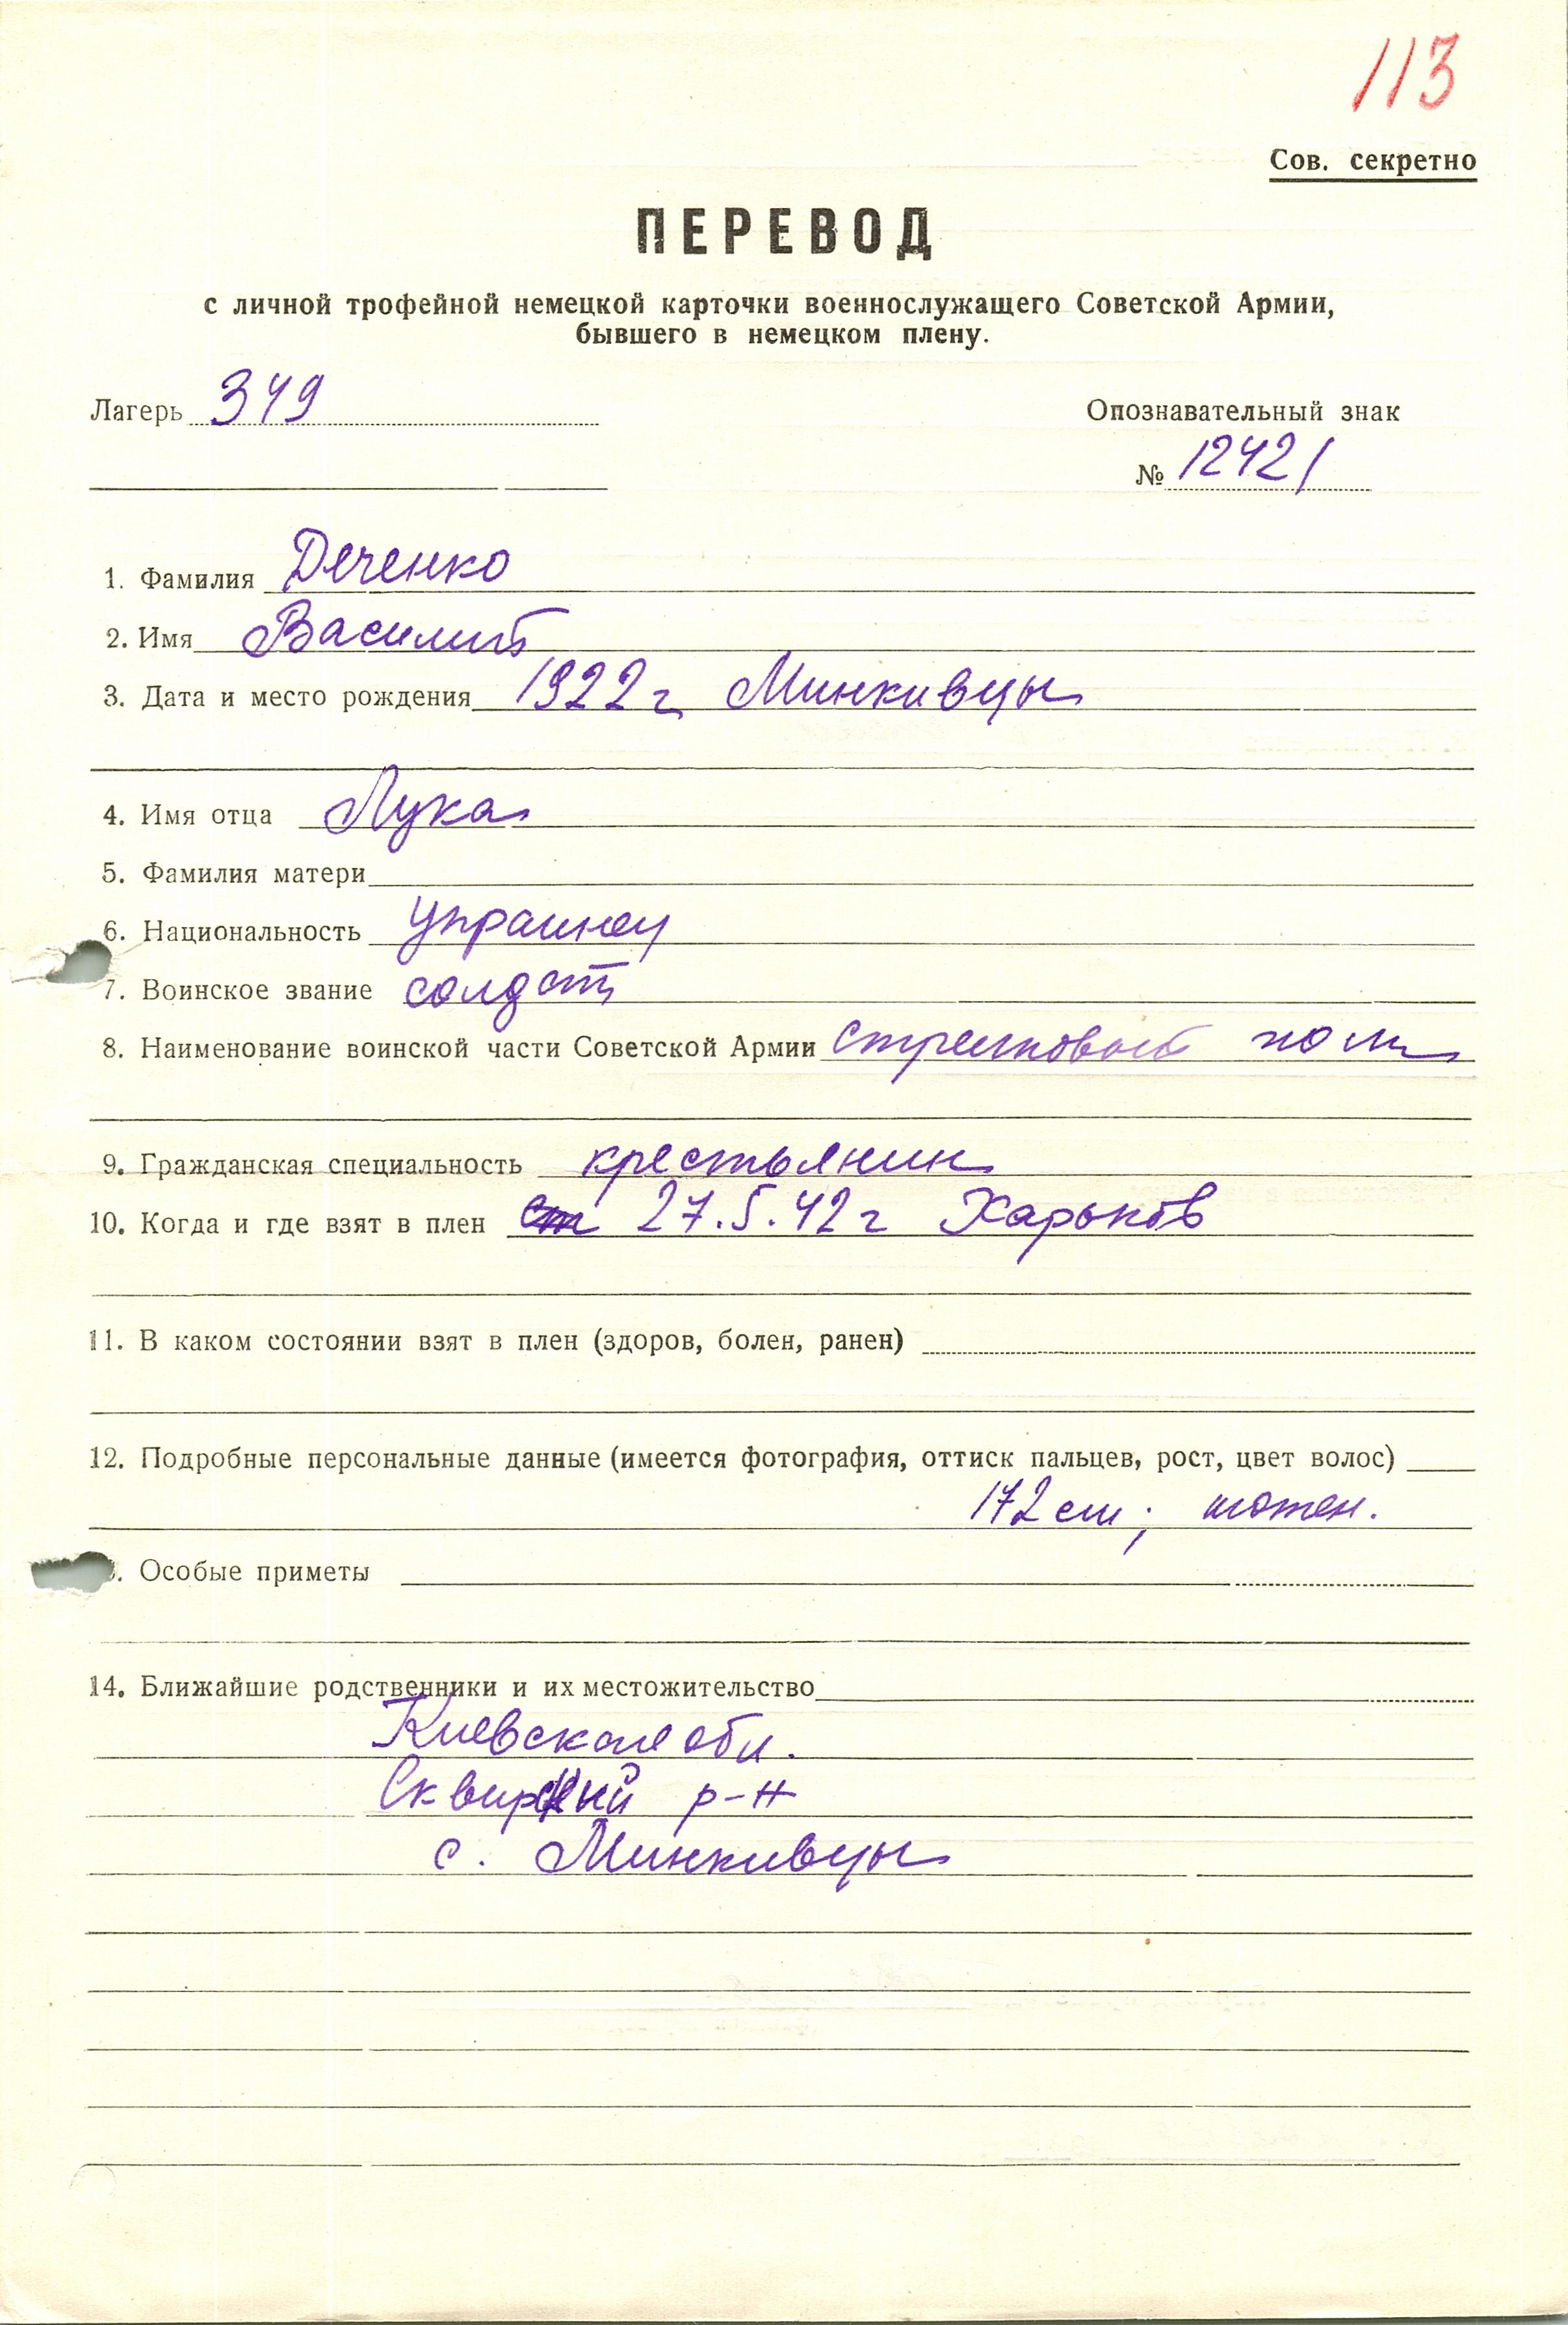 113
Сов. секретно
ПЕРЕВОД
с личной трофейной немецкой карточки военнослужащего Советской Армии,
бывшего в немецком плену.
Лагерь 349 Опознавательный знак
№ 12421
1. Фамилия Деченко
2. Имя Василий
3. Дата и место рождения 1922 г Минкивцы
4. Имя отца Лука
5. Фамилия матери
6. Национальность украинец
7. Воинское звание солдат
8. Наименование воинской части Советской Армии стрелковый полк
9. Гражданская специальность крестьянин
10. Когда и где взят в плен 27.5.42 г Харьков
11. В каком состоянии взят в плен (здоров, болен, ранен)
12. Подробные персональные данные (имеется фотография, оттиск пальцев, рост, цвет волос)
172 см;
. Особые приметы
14. Ближайшие родственники и их местожительство
Киевская обл.
Сквирский р-н
с. Минкивцы